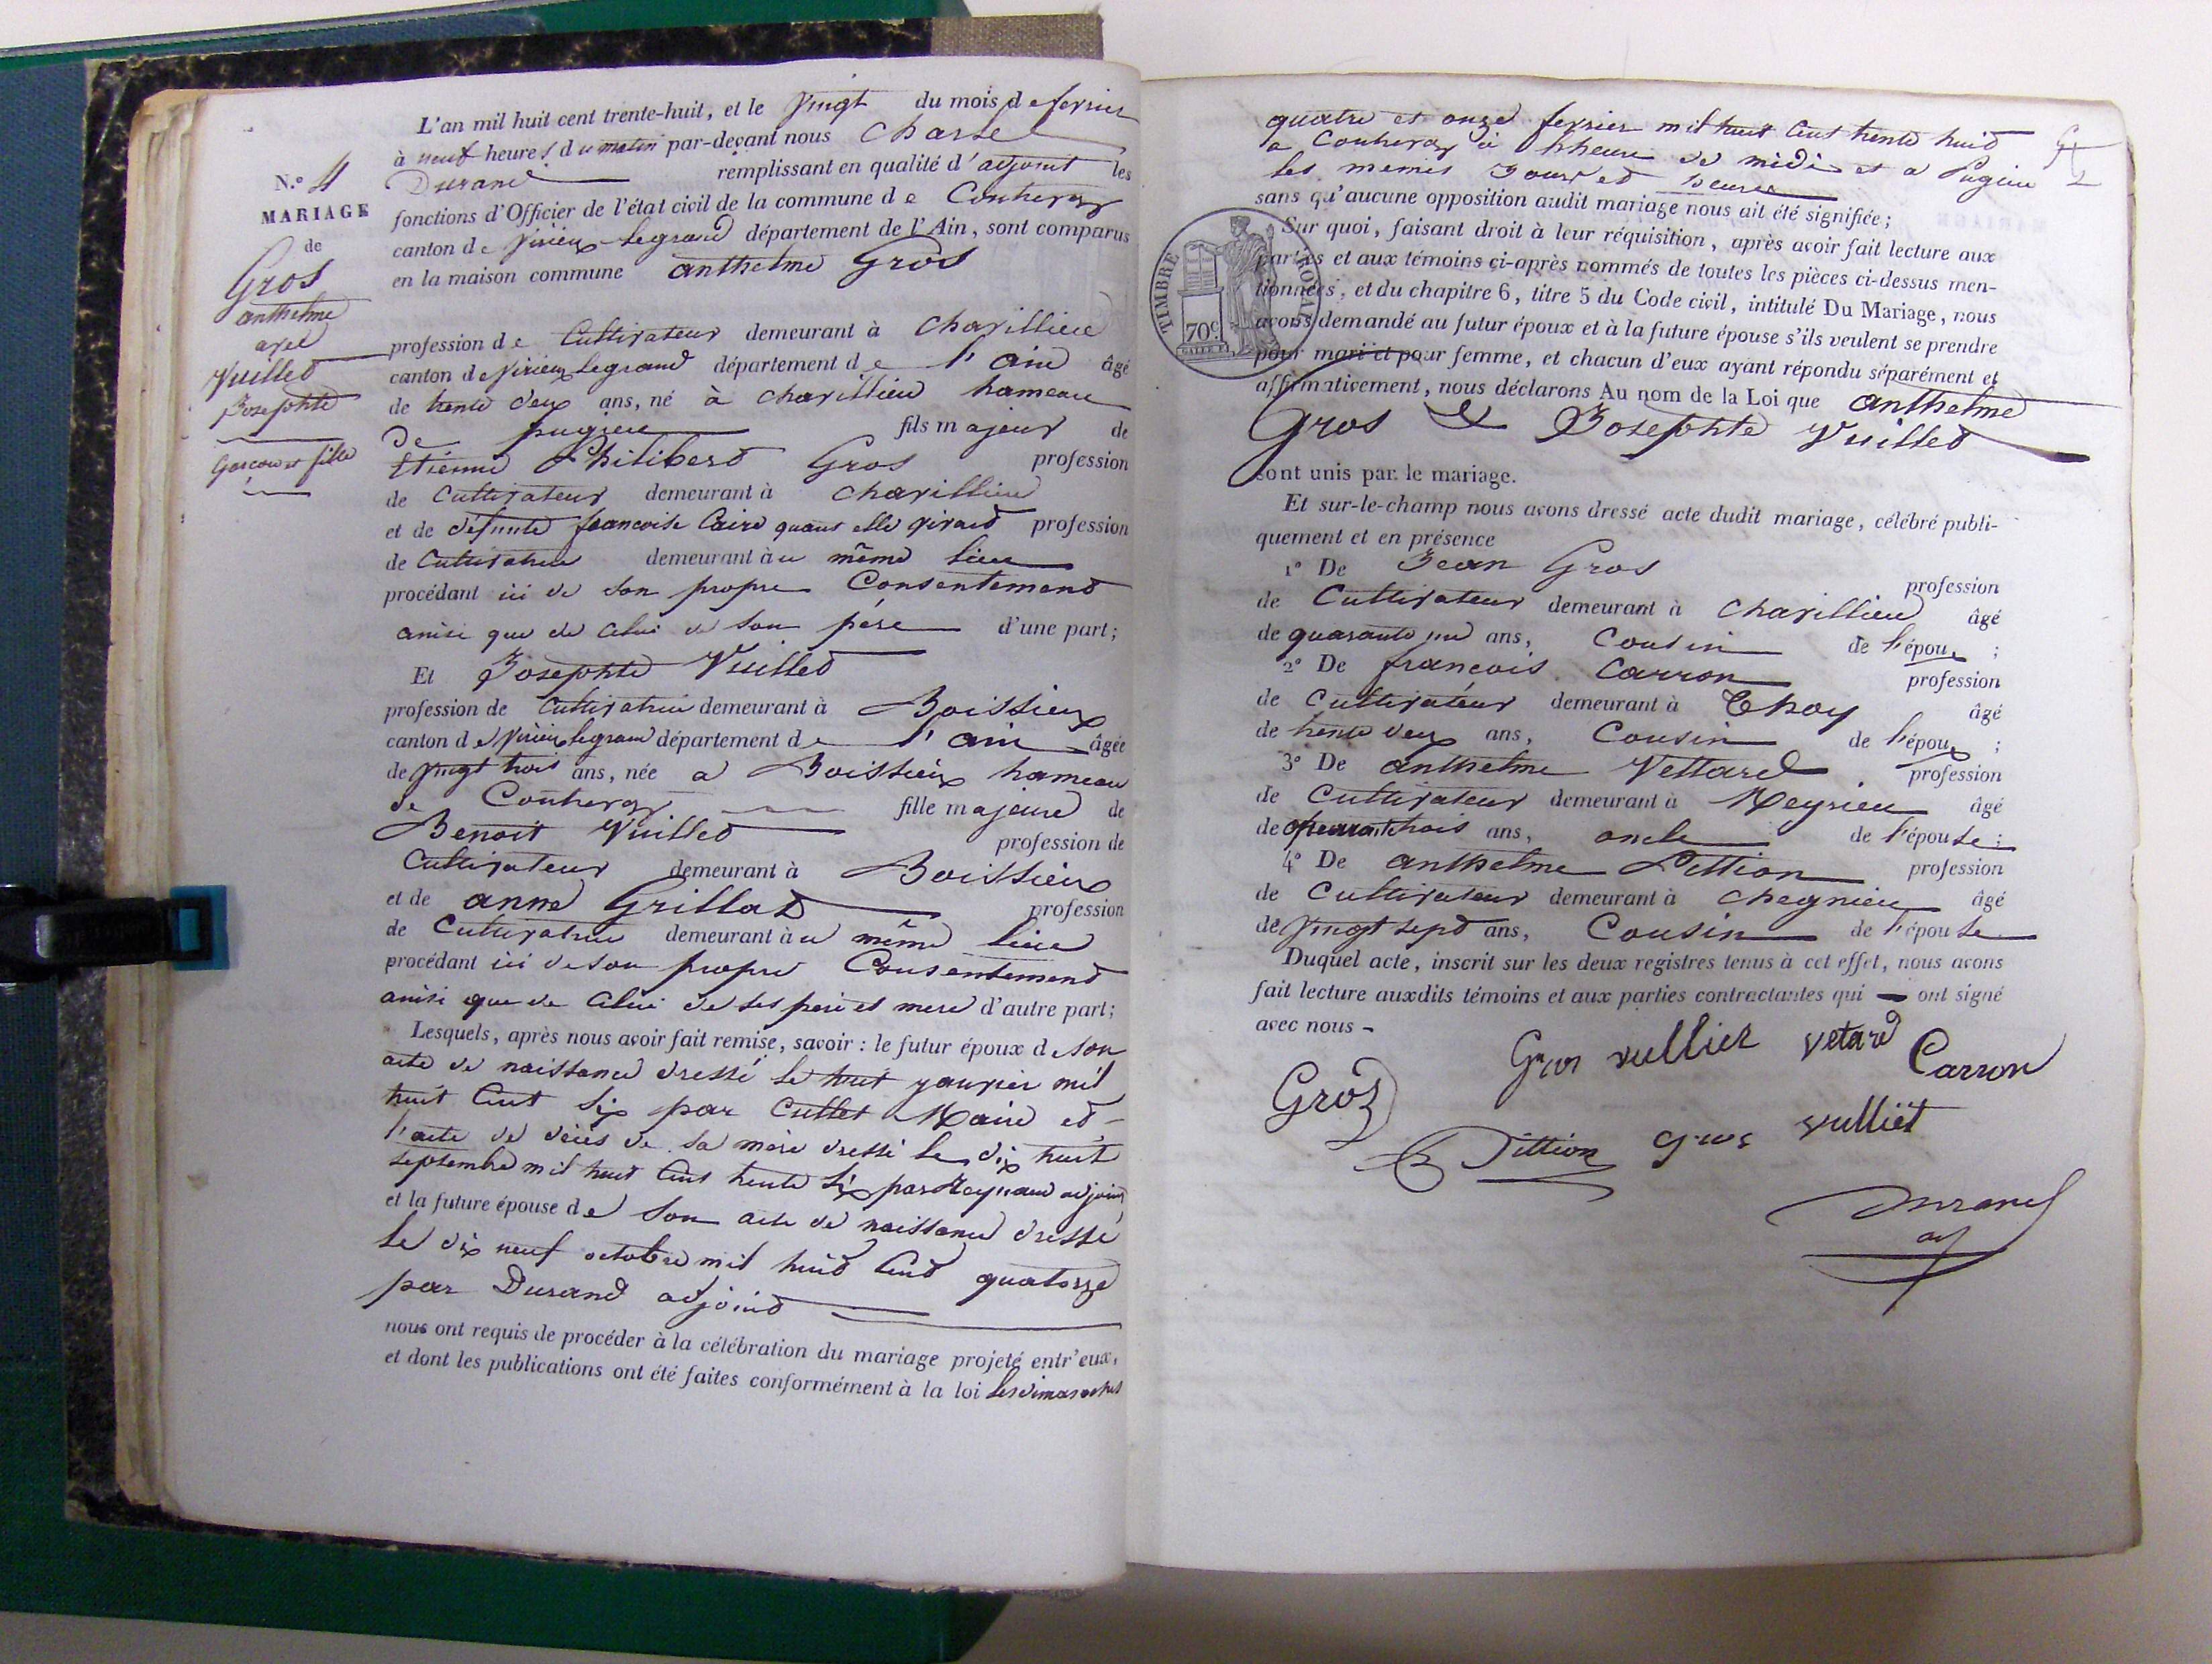 L'an mil huit cent trente-huit, et le vingt du mois de fevrier
à neuf heures du matin par-devant nous Charle
Durand remplissant en qualité d'adjoint les
fonctions d'Officier de l'état civil de la commune de Contrevoz
canton de Virieux legrand département de l'Ain, sont comparus
en la maison commune anthelme Gros
N.º 4
MARIAGE
de
Gros
anthelme
avec
Vuillet
Josephte
Garcon et fille
profession de Cultivateur demeurant à Chavillieu
canton de Virieux legrand département de l'ain âgé
de trente deux ans, né à Chavillieu hameau
De pugieu fils majeur de
Etienne Philibert Gros profession
de Cultivateur demeurant à Chavillieu
et de défunte francoise Caire quant elle vivait profession
de Cultivatrice demeurant au même lieu
procédant ici de son propre Consentement
ainsi que de celui de son père d'une part;
Et Josephte Vuillet
profession de Cultivatrice demeurant à Boissieux
canton de Virieux legrand département de l'ain âgée
de vingt trois ans, née a Boissieux hameau
de Contrevoz fille majeure de
Benoit Vuillet profession de
Cultivateur demeurant à Boissieux
et de anne Grillat profession
de Cultivatrice demeurant au même lieu
procédant ici de son propre Consentement
ainsi que de celui de ses pere et mere d'autre part;
Lesquels, après nous avoir fait remise, savoir : le futur époux de son
acte de naissance dressé le huit janvier mil
huit cent six par Cullet Maire et
l'acte de décès de sa mère dressé le dix huit
septembre mil huit cent trente six par Reynaud adjoint
et la future épouse de son acte de naissance dressé
le dix neuf octobre mil huit cent quatorze
par Durand adjoint
nous ont requis de procéder à la célébration du mariage projeté entr'eux,
et dont les publications ont été faites conformément à la loi les dimanches
quatre et onze fevrier mil huit cent trente huit
a Contrevoz à heure de midi et a Pugieu
les memes jours et heures
sans qu'aucune opposition audit mariage nous ait été signifiée;
TIMBRE ROYAL
70 c.
Sur quoi, faisant droit à leur réquisition, après avoir fait lecture aux
parties et aux témoins ci-après nommés de toutes les pièces ci-dessus men-
tionnées, et du chapitre 6, titre 5 du Code civil, intitulé Du Mariage, nous
avons demandé au futur époux et à la future épouse s'ils veulent se prendre
pour mari et pour femme, et chacun d'eux ayant répondu séparément et
affirmativement, nous déclarons Au nom de la Loi que anthelme
Gros & Josephte Vuillet
sont unis par le mariage.
Et sur-le-champ nous avons dressé acte dudit mariage, célébré publi-
quement et en présence
1º De Jean Gros profession
de Cultivateur demeurant à Chavillieu âgé
de quarante un ans, Cousin de l'époux ;
2º De francois Carron profession
de Cultivateur demeurant à Thoy âgé
de trente deux ans, Cousin de l'époux ;
3º De anthelme Vettard profession
de Cultivateur demeurant à Meyrieu âgé
de trois ans, oncle de l'épouse ;
4º De anthelme Pittion profession
de Cultivateur demeurant à Chegnieu âgé
de vingt sept ans, Cousin de l'épouse
Duquel acte, inscrit sur les deux registres tenus à cet effet, nous avons
fait lecture auxdits témoins et aux parties contractantes qui ont signé
avec nous
Gros vulliet vetard Carron
Gros
Pittion gros vulliet
Durand
adj